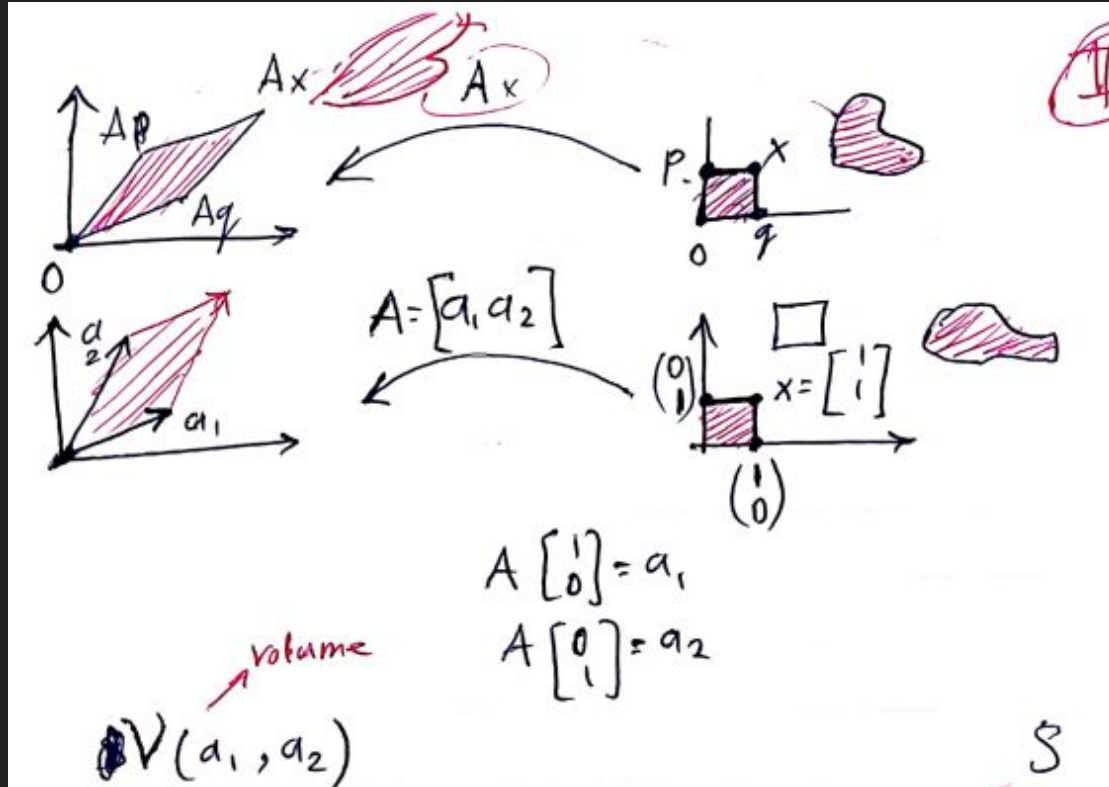 Ax
Ax
Ap
P
x
Aq
q
0
0
A=[a₁ a₂]
a₂
a₁
(0 1)
x=[1 1]
(1 0)
A[1 0]=a₁
A[0 1]=a₂
volume
V(a₁, a₂)
S